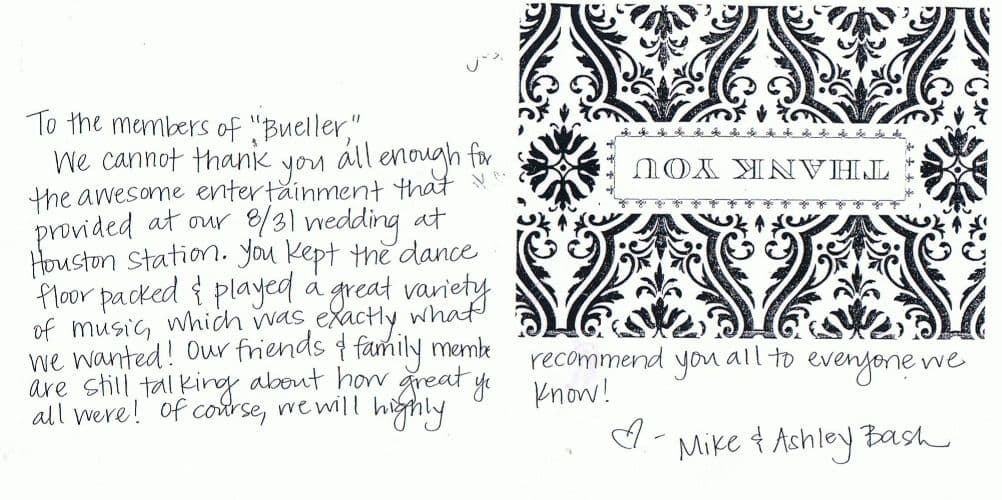 To the members of "Bueller,"
We cannot thank you all enough for
the awesome entertainment that
provided at our 8/31 wedding at
Houston Station. You kept the dance
floor packed & played a great variety
of music, which was exactly what
we wanted! Our friends & family membe
are still talking about how great yo
all were! Of course, we will highly
THANK YOU
recommend you all to everyone we
know!
♡ - Mike & Ashley Bash